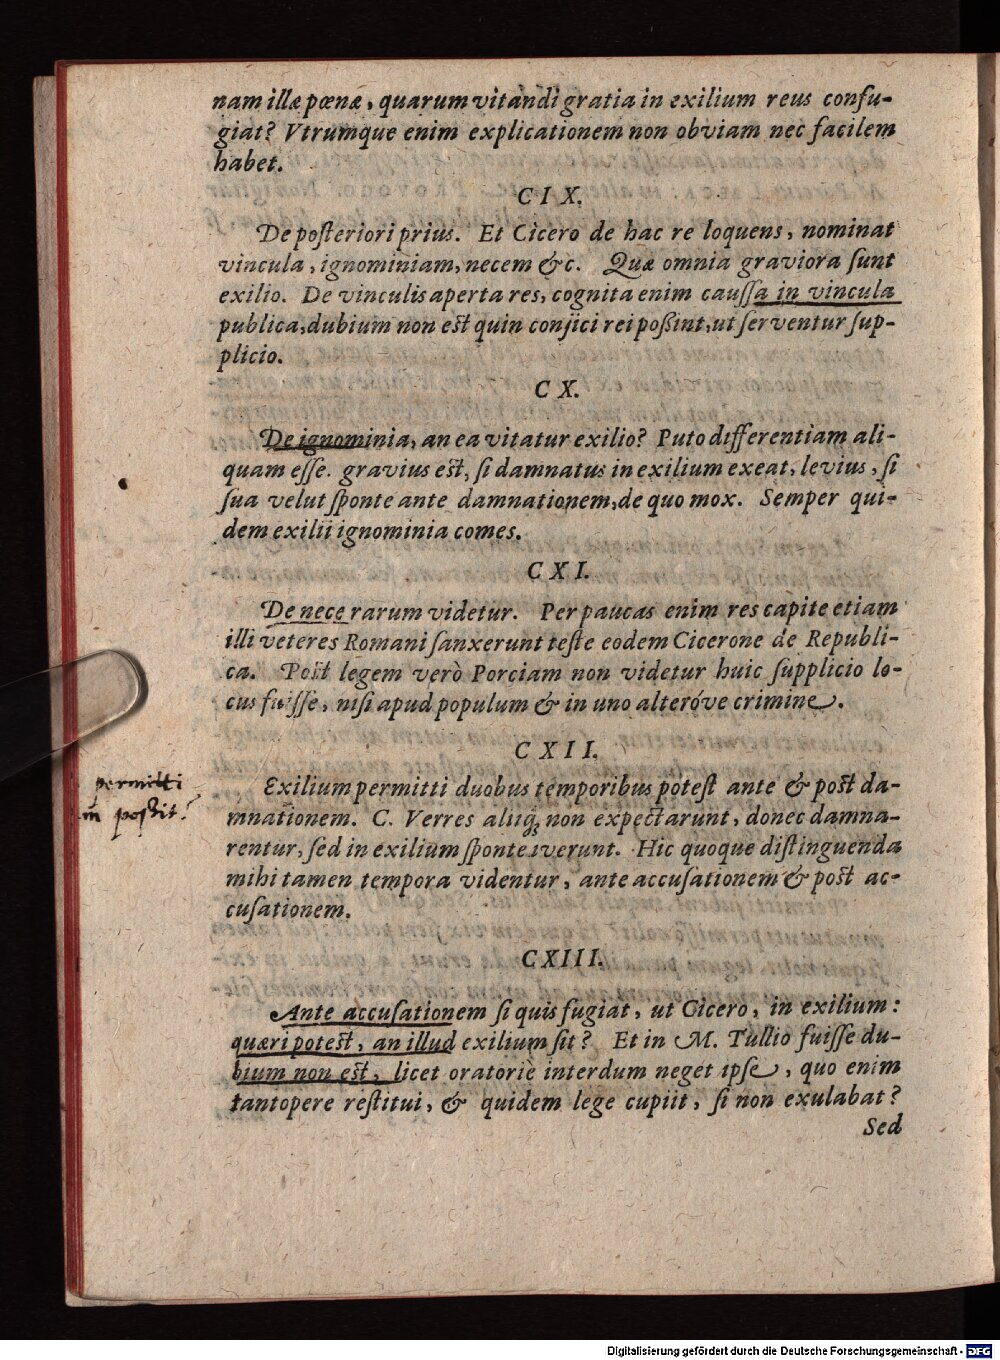 nam illæ pœnæ, quarum vitandi gratia in exilium reus confu-
giat? Vtrumque enim explicationem non obviam nec facilem
habet.
CIX.
De posteriori prius. Et Cicero de hac re loquens, nominat
vincula, ignominiam, necem &c. Quæ omnia graviora sunt
exilio. De vinculis aperta res, cognita enim caussa in vincula
publica, dubium non est quin conjici rei poßint, ut serventur sup-
plicio.
CX.
De ignominia, an ea vitatur exilio? Puto differentiam ali-
quam esse. gravius est, si damnatus in exilium exeat, levius, si
sua velut sponte ante damnationem, de quo mox. Semper qui-
dem exilii ignominia comes.
CXI.
De nece rarum videtur. Per paucas enim res capite etiam
illi veteres Romani sanxerunt teste eodem Cicerone de Republi-
ca. Post legem verò Porciam non videtur huic supplicio lo-
cus fuisse, nisi apud populum & in uno alteróve crimine.
CXII.
permitti
postit?
Exilium permitti duobus temporibus potest ante & post da-
mnationem. C. Verres aliiq; non expectarunt, donec damna-
rentur, sed in exilium sponte iverunt. Hic quoque distinguenda
mihi tamen tempora videntur, ante accusationem & post ac-
cusationem.
CXIII.
Ante accusationem si quis fugiat, ut Cicero, in exilium:
quæri potest, an illud exilium sit? Et in M. Tullio fuisse du-
bium non est, licet oratoriè interdum neget ipse, quo enim
tantopere restitui, & quidem lege cupiit, si non exulabat?
Sed
Digitalisierung gefördert durch die Deutsche Forschungsgemeinschaft - DFG